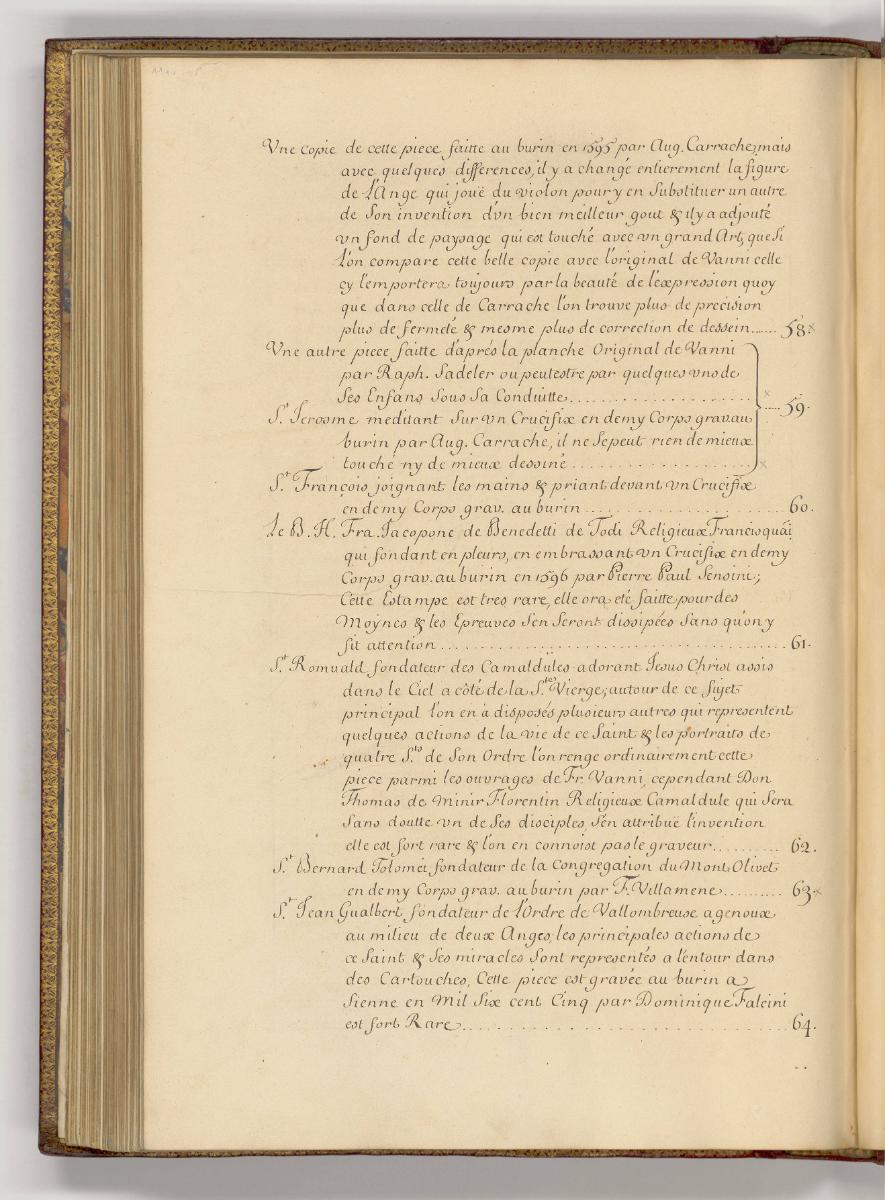 Vne copie de cette piece faitte au burin en 1595 par Aug. Carrache, mais
avec quelques differences, il y a changé entierement la figure
de l'Ange qui jouë du violon pour y en substituer un autre
de son invention d'vn bien meilleur gout & il y a adjouté
vn fond de paysage qui est touché avec vn grand Art, que si
l'on compare cette belle copie avec l'original de Vanni celle
cy l'emportera toujours par la beauté de l'expression quoy
que dans celle de Carrache l'on trouve plus de precision
plus de fermeté & mesme plus de correction de dessein...... 58. x
Vne autre piece faitte d'aprés la planche Original de Vanni
par Raph. Sadeler ou peutestre par quelques vns de
Ses Enfans sous sa Conduitte.................... x ..... 59.
St. Jerosme meditant sur vn Crucifix en demy Corps grav. au
burin par Aug. Carrache, il ne se peut rien de mieux
touché ny de mieux dessiné .................... x
St. François joignant les mains & priant devant vn Crucifix
en demy Corps grav. au burin .................... 60.
Le B. H. Fra. Jacopone de Benedetti de Todi Religieux Francisquai
qui fondant en pleurs, en embrassant vn Crucifix en demy
Corps grav. au burin en 1596 par Pierre Paul Sensini;
Cette Estampe est tres rare, elle ora eté faitte pour des
Moynes & les Epreuves s'en seront dissipées sans qu'on y
fit attention .................... 61.
St. Romuald fondateur des Camaldules adorant Jesus Christ assis
dans le Ciel a côté de la Ste. Vierge; autour de ce sujet
principal l'on en a disposés plusieurs autres qui representent
quelques actions de la vie de ce Saint & les portraits de
quatre Sts. de Son Ordre l'on renge ordinairement cette
piece parmi les ouvrages de Fr. Vanni, cependant Don
Thomas de Minir Florentin Religieux Camaldule qui sera
sans doutte vn de ses disciples, s'en attribuë l'invention
elle est fort rare & l'on en connoist pas le graveur......... 62.
St. Bernard Tolomei fondateur de la Congregation du Mont Olivet
en demy Corps grav. au burin par F. Villamene.......... 63. x
St. Jean Gualbert fondateur de l'Ordre de Vallombreuse a genoux
au milieu de deux Anges, les principales actions de
ce Saint & ses miracles sont representés a l'entour dans
des Cartouches, Cette piece est gravée au burin a
Sienne en Mil Six cent Cinq par Dominique Falcini
est fort Rare.................... 64.